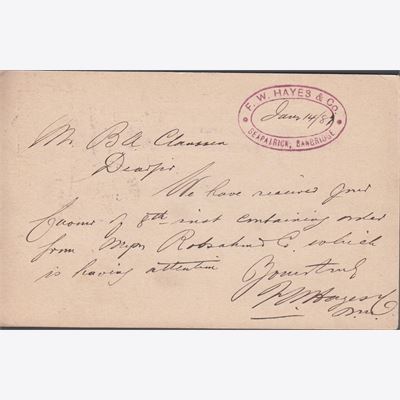 F. W. HAYES & Co.
Jany 14/87
SEAPATRICK, BANBRIDGE
Mr. B A Claussen
Dear Sir
We have received your
favour of 8th inst containing order
from Messrs & Co. which
is having attention
Yours truly
F W Hayes & Co